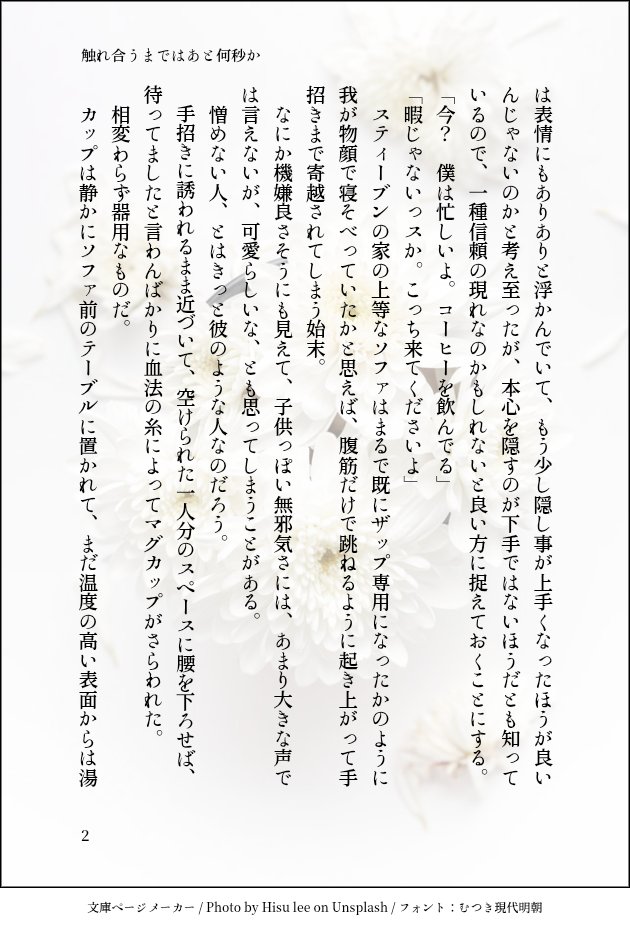 触れ合うまではあと何秒か
は表情にもありありと浮かんでいて、もう少し隠し事が上手くなったほうが良い
んじゃないのかと考え至ったが、本心を隠すのが下手ではないほうだとも知って
いるので、一種信頼の現れなのかもしれないと良い方に捉えておくことにする。
「今？　僕は忙しいよ。コーヒーを飲んでる」
「暇じゃないっスか。こっち来てくださいよ」
　スティーブンの家の上等なソファはまるで既にザップ専用になったかのように
我が物顔で寝そべっていたかと思えば、腹筋だけで跳ねるように起き上がって手
招きまで寄越されてしまう始末。
　なにか機嫌良さそうにも見えて、子供っぽい無邪気さには、あまり大きな声で
は言えないが、可愛らしいな、とも思ってしまうことがある。
　憎めない人、とはきっと彼のような人なのだろう。
　手招きに誘われるまま近づいて、空けられた一人分のスペースに腰を下ろせば、
待ってましたと言わんばかりに血法の糸によってマグカップがさらわれた。
　相変わらず器用なものだ。
　カップは静かにソファ前のテーブルに置かれて、まだ温度の高い表面からは湯
2
文庫ページメーカー / Photo by Hisu lee on Unsplash / フォント：むつき現代明朝